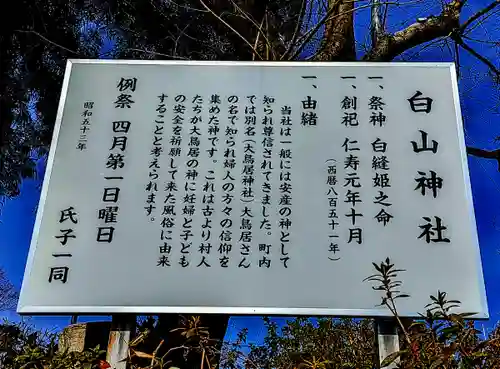 白山神社
一、祭神 白縫姫之命
一、創祀 仁寿元年十月
(西暦八百五十一年)
一、由緒
当社は一般には安産の神として
知られ尊信されてきました。町内
では別名(大鳥居神社)大鳥居さん
の名で知られ婦人の方々の信仰を
集めた神です。これは古より村人
たちが大鳥居の神に妊婦と子ども
の安全を祈願して来た風俗に由来
することと考えられます。
例祭 四月第一日曜日
昭和五十三年
氏子一同